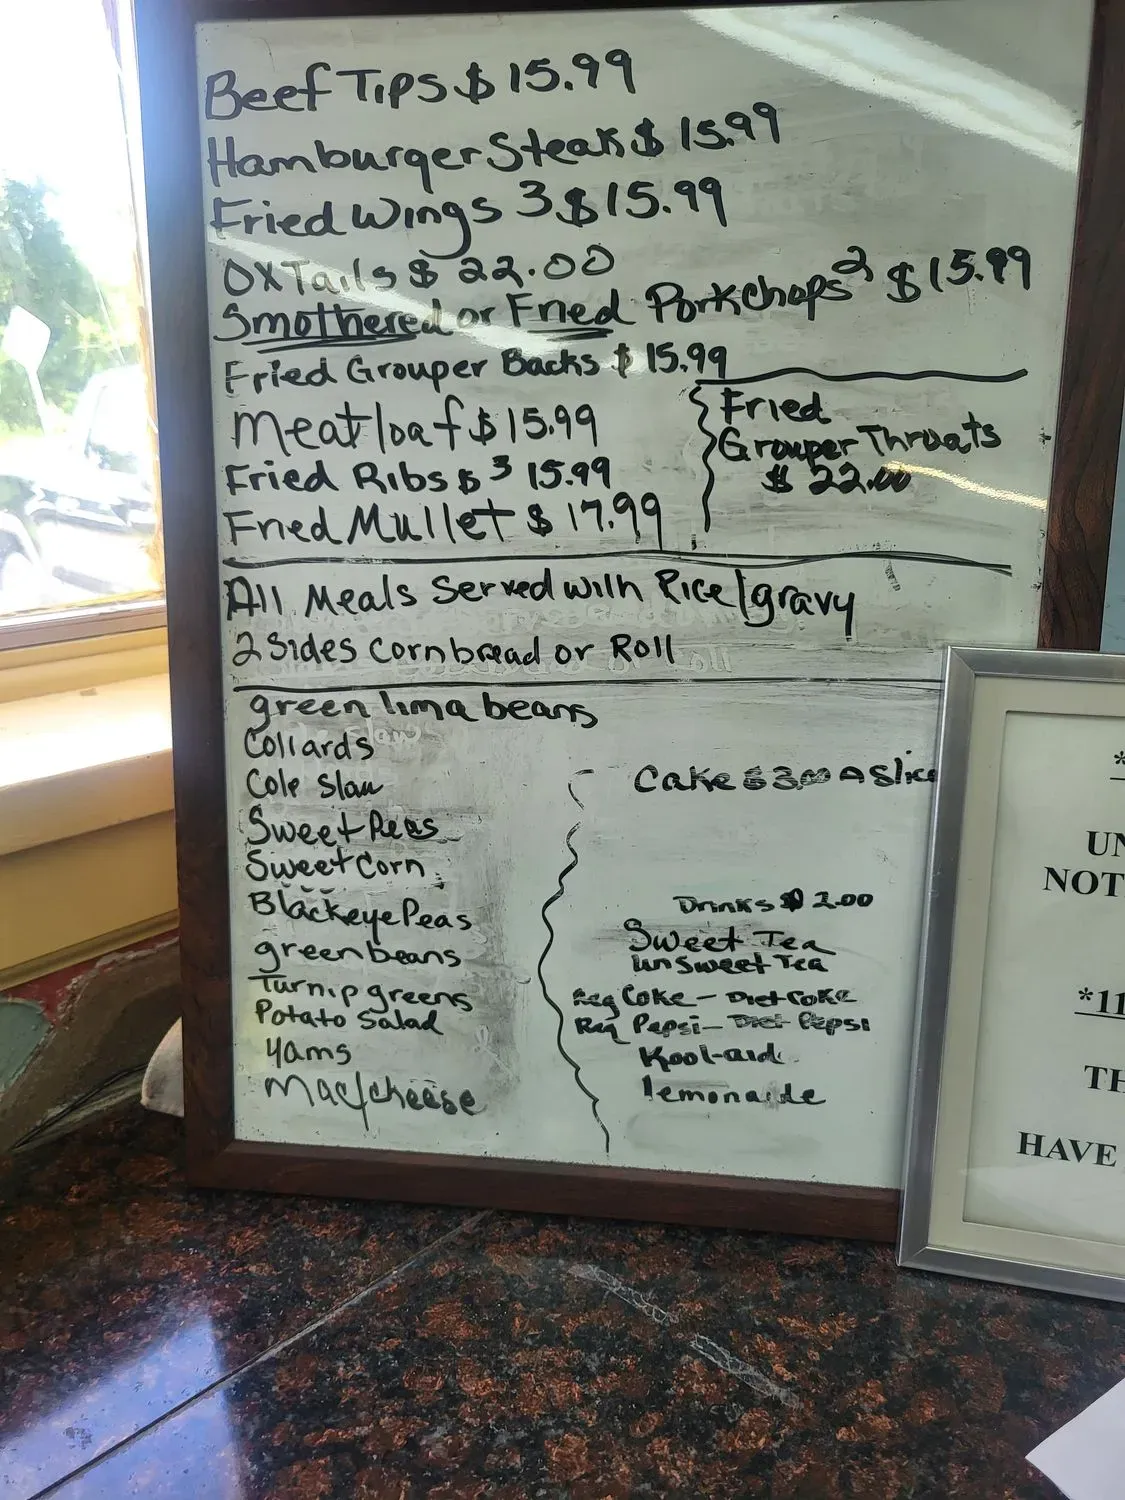 Beef Tips $ 15.99
Hamburger Steak $ 15.99
Fried Wings 3 $ 15.99
OxTails $ 22.00
Smothered or Fried Porkchops 2 $ 15.99
Fried Grouper Backs $ 15.99
Meatloaf $ 15.99
Fried Ribs $ 3 15.99
Fried Mullet $ 17.99
Fried
Grouper Throats
$ 22.00
All Meals Served with Rice/gravy
2 Sides Cornbread or Roll
green lima beans
Collards
Cole Slaw
Sweet Peas
Sweet Corn
Blackeye Peas
green beans
Turnip greens
Potato Salad
Yams
Mac/cheese
Cake $ 3.00 A Slice
Drinks $ 2.00
Sweet Tea
unSweet Tea
Reg Coke - Diet Coke
Reg Pepsi - Diet Pepsi
Kool-aid
lemonaide
*
UN
NOT
*11
TH
HAVE